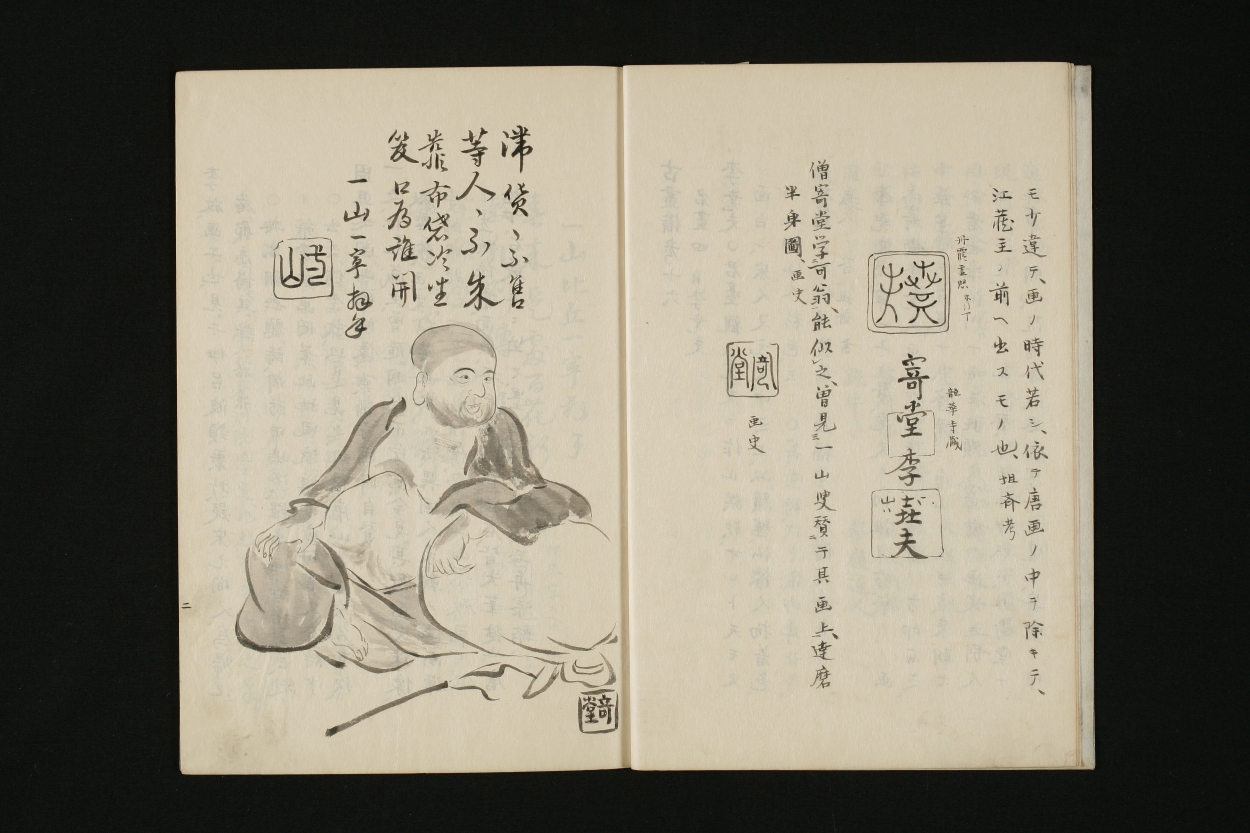 モ少違テ画ノ時代若シ、依テ唐画ノ中ヲ除キテ、
江蔵主ノ前ヘ出スモノ也、
龍華寺蔵
寄堂
李
夫
僧寄堂学可翁、能似之、曽見一山叟賛于其画上、達磨
半身圖、画史
奇堂
画史
滞貨〻不售
等人〻不来
靠布袋冷坐
笑口為誰開
一山一寧拝手
奇堂
二